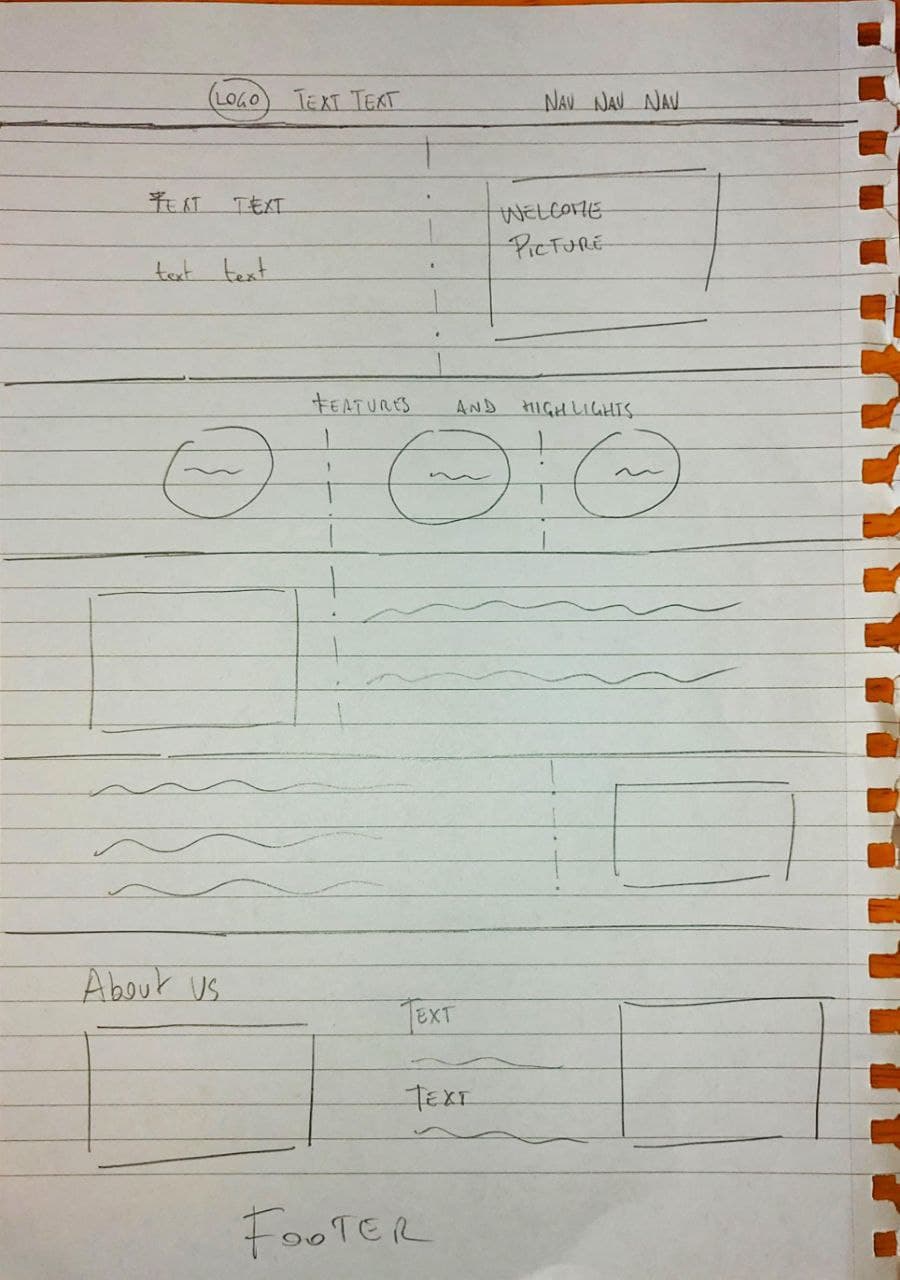 LOGO TEXT TEXT NAV NAV NAV
TEXT TEXT
text text
WELCOME
PICTURE
FEATURES AND HIGHLIGHTS
About us
TEXT
TEXT
FOOTER